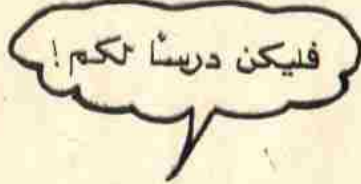 فليكن درسًا لكم!